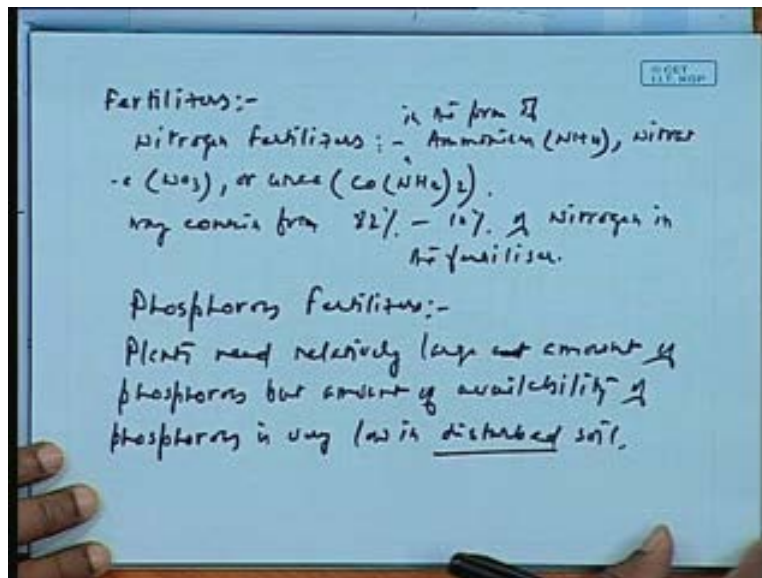 © CET
I.I.T. KGP
Fertilizers:-
in the form of
Nitrogen fertilizers :- Ammonium (NH4), Nitrat
-e (NO3), or urea (CO(NH2)2).
may contain from 82% - 10% of Nitrogen in
the fertiliser.
Phosphorous Fertilizers:-
Plants need relatively large amount of
phosphorous but amount of availability of
phosphorous is very low in disturbed soil.